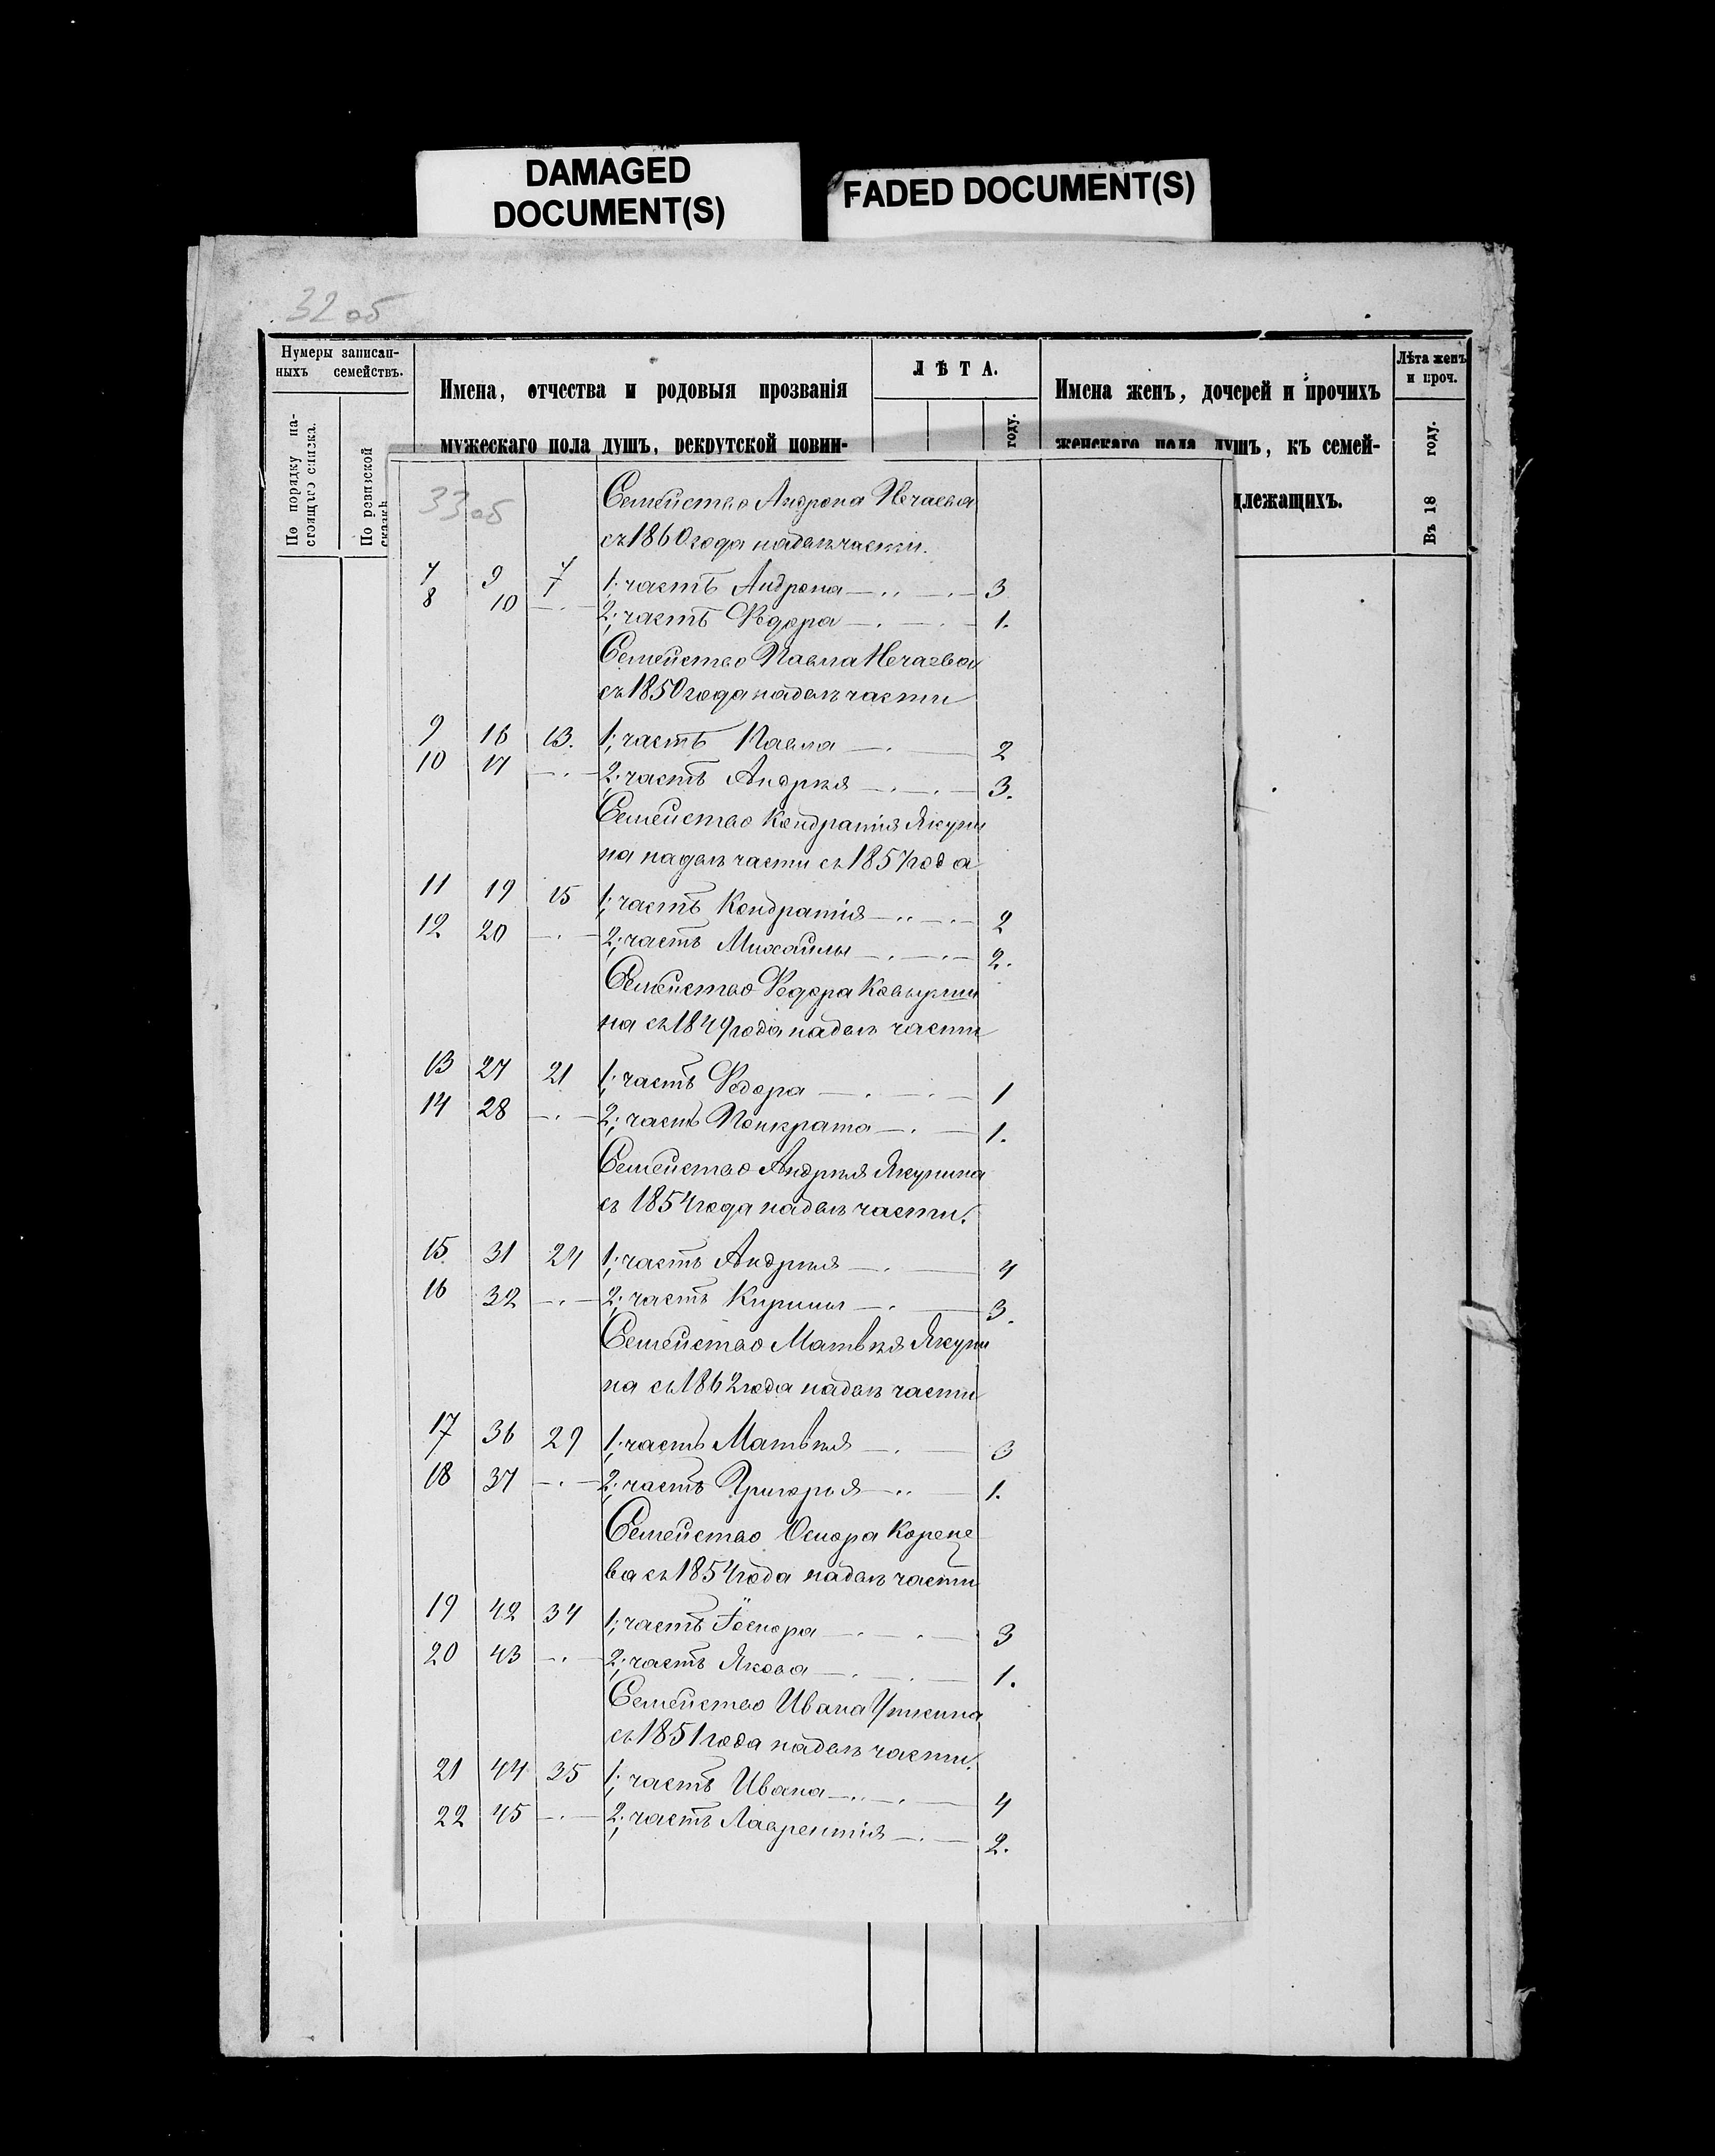 DAMAGED
DOCUMENT(S)
FADED DOCUMENT(S)
32 об
Нумеры записан-
ныхъ семействъ.
По порядку на-
стоящаго списка.
По ревизской
сказкѣ
Имена, отчества и родовыя прозванія
мужескаго пола душъ, рекрутской повин-
ЛѢТА.
году.
Имена женъ, дочерей и прочихъ
женскаго пола душъ, къ семей-
длежащихъ.
Лѣта женъ
и проч.
Въ 18 году.
33 об
Семейство Андрона Нечаева
съ 1860 года на две части.
7 9 7 1; часть Андрона 3
8 10 2; часть Федора 1.
Семейство Павла Нечаева
съ 1850 года на двѣ части
9 16 13. 1; часть Павла 2
10 17 2; часть Андрѣя 3.
Семейство Кондратія Якуни
на на двѣ части съ 1857 года
11 19 15 1; часть Кондратія 2
12 20 2; часть Михайлы 2.
Семейство Федора
на съ 1849 года на двѣ части
13 27 21 1; часть Федора 1
14 28 2; часть Понкрата 1.
Семейство Андрѣя Якунина
съ 1854 года на двѣ части.
15 31 24 1; часть Андрѣя 4
16 32 2; часть Кирилы 3.
Семейство Матвѣя Якуни
на съ 1862 года на двѣ части
17 36 29 1; часть Матвѣя 3
18 37 2; часть Григорья 1.
Семейство Осипра Корене
ва съ 1854 года на двѣ части
19 42 34 1; часть 3
20 43 2; часть Якова 1.
Семейство Ивана Уткина
съ 1851 года на двѣ части.
21 44 35 1; часть Ивана 4
22 45 2; часть Лаврентія 2.